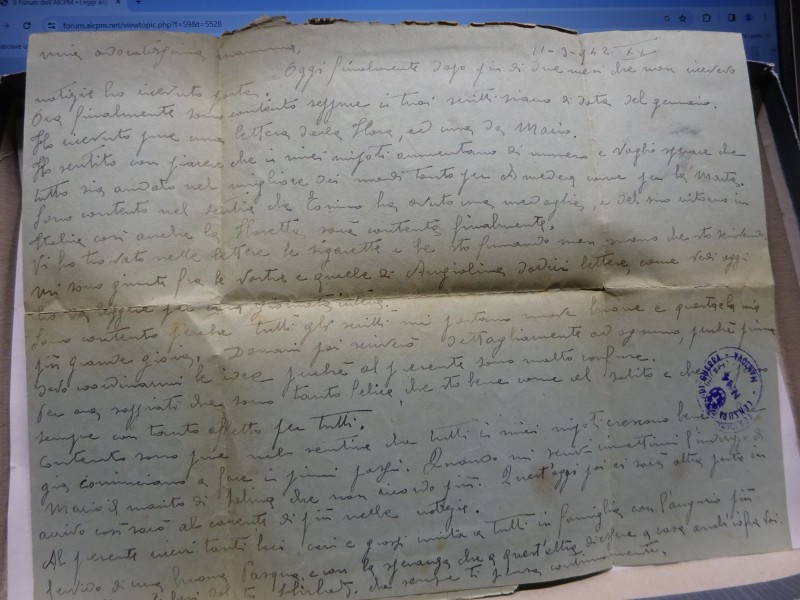 Il Forum dell'AICPM • Leggi ar
forum.aicpm.net/viewtopic.php?f=59&t=5528
mia adoratissima mamma, 11-3-942 XX
Oggi finalmente dopo più di due mesi che non ricevevo
notizie ho ricevuto posta.
Ora finalmente sono contento seppure i tuoi scritti siano di data del gennaio.
Ho ricevuto pure una lettera della Flora, ed una da Mario.
Ho sentito con piacere che i miei nipoti aumentano di numero e voglio sperare che
tutto sia andato nel migliore dei modi tanto per Amedea come per la Marta.
Sono contento nel sentire che Esimo ha avuto una medaglia, e del suo ritorno in
Italia così anche la Fioretta sarà contenta finalmente.
Vi ho trovato nelle lettere le sigarette e le sto fumando man mano che sto scrivendo
mi sono giunte fra le vostre e quelle di Angiolina dodici lettere, come vedi oggi
ho da leggere per una giornata intera.
Sono contento perché tutti gli scritti mi portano nuove buone e questa è la mia
più grande gioia. Domani poi scriverò dettagliatamente ad ognuno, perché prima
devo coordinarmi le idee perché al presente sono molto confuse.
Per ora sappiate che sono tanto felice, che sto bene come al solito e che
sempre con tanto affetto per tutti.
Contento sono pure nel sentire che tutti i miei nipoti crescono bene
già cominciano a fare i primi passi. Quando mi scrivi immettimi l'indirizzo di
Mario il marito di che non ricordo più. Quest'oggi poi ci sarà altra posta in
arrivo così sarò al corrente di più nelle notizie.
Al presente ricevi tanti baci cari e grossi unita a tutti in famiglia con l'augurio più
fervido di una buona Pasqua e con la speranza che a quest'altra di essere a casa anch'io fra voi.
che sempre ti pensa continuamente.
CENSURA DI GUERRA